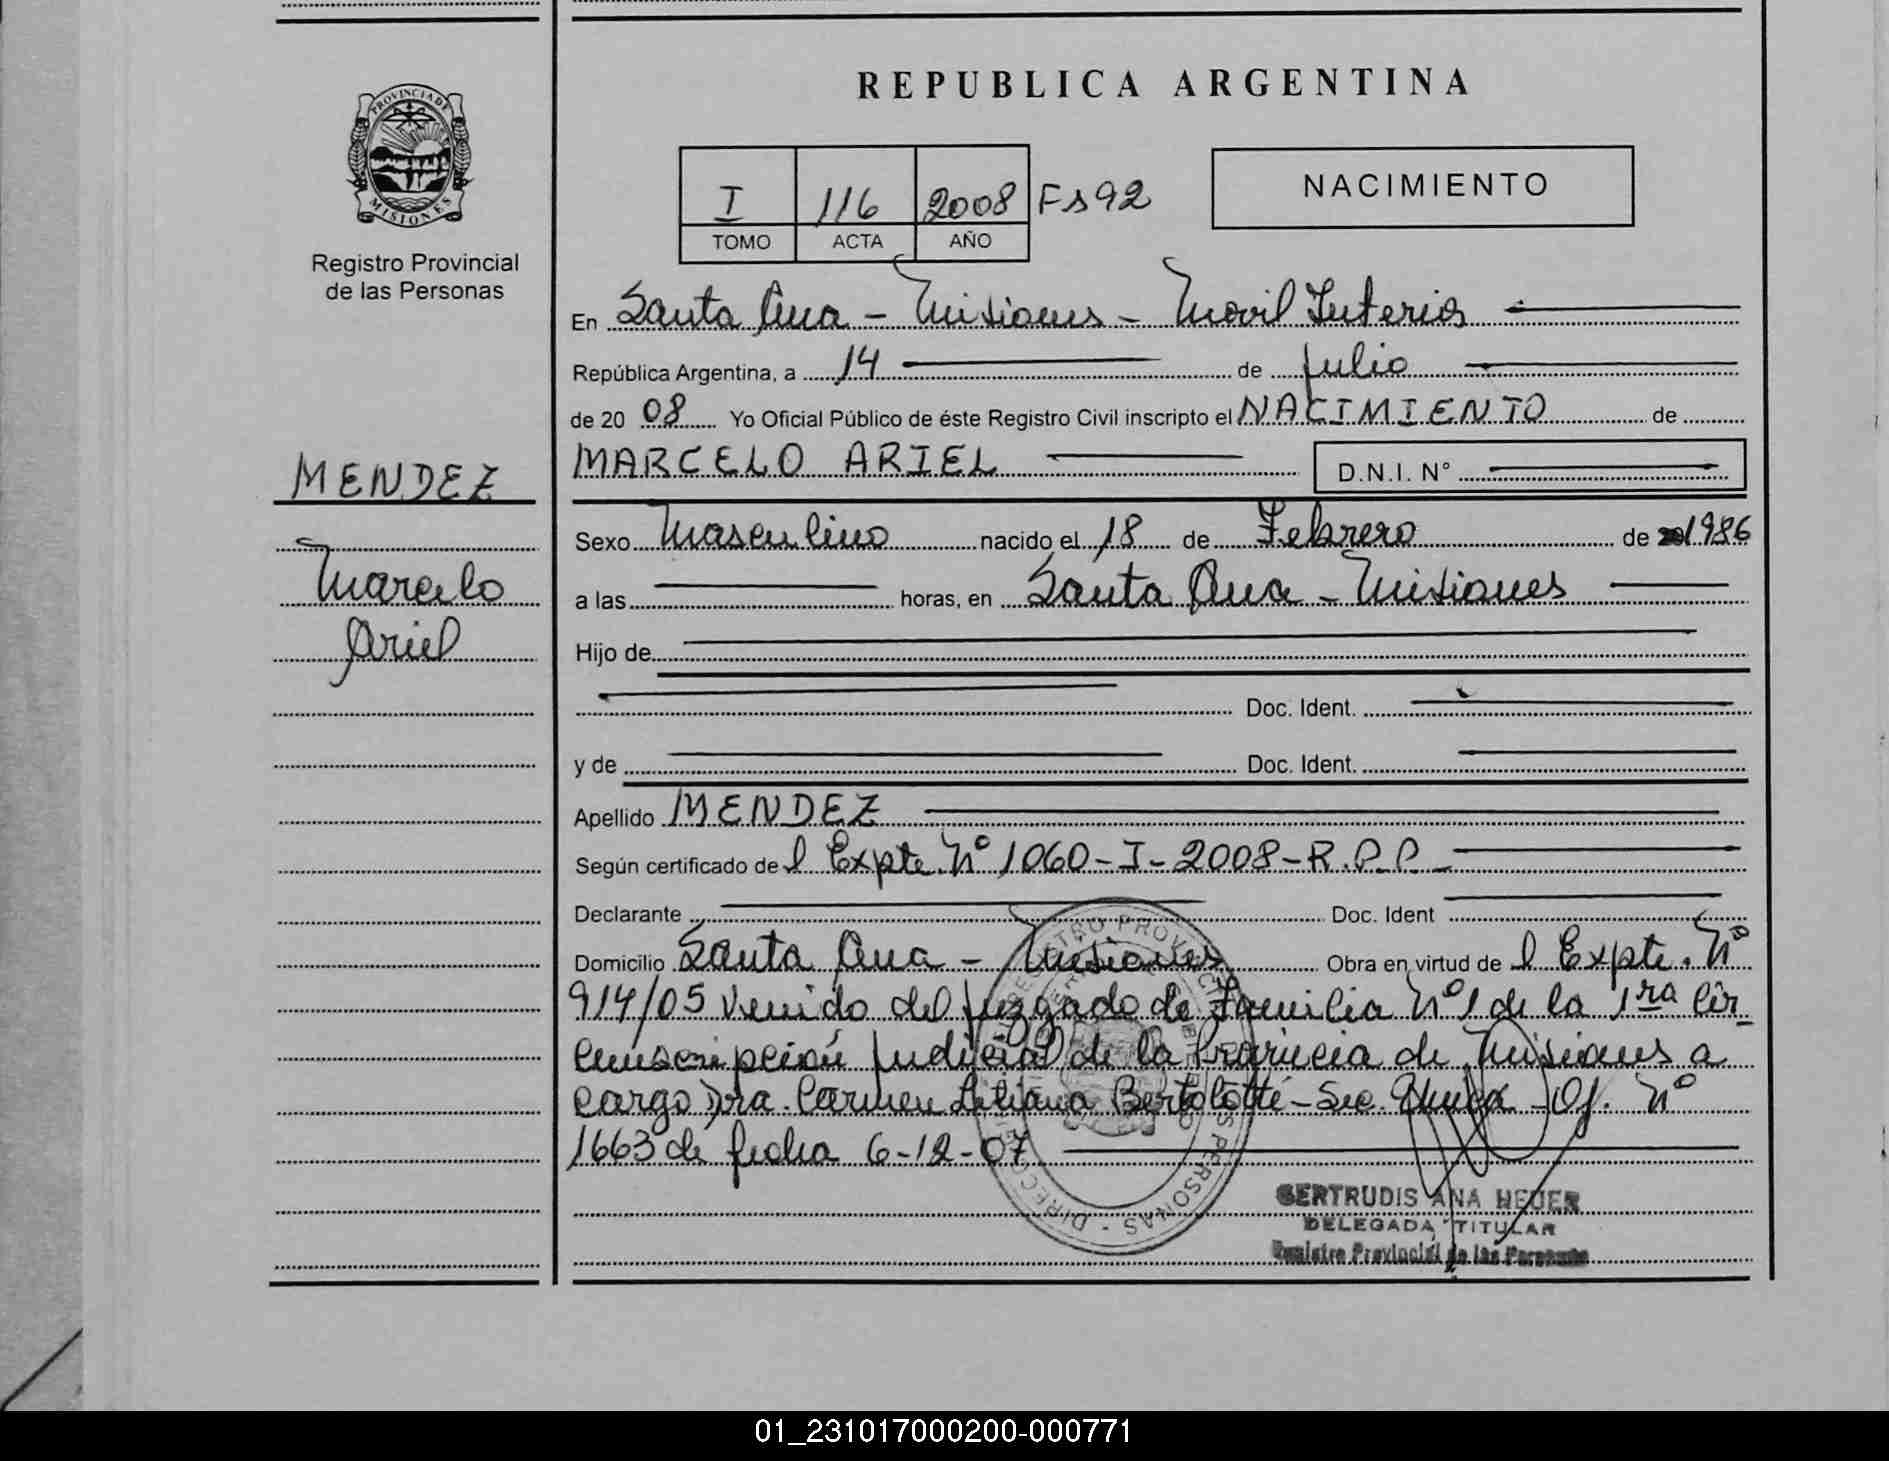 REPUBLICA ARGENTINA
PROVINCIA DE
MISIONES
Registro Provincial
de las Personas
I 116 2008 Fs 92
TOMO ACTA AÑO
NACIMIENTO
En Santa Ana - Misiones - Movil Interior
República Argentina, a 14 de Julio
de 20 08 Yo Oficial Público de éste Registro Civil inscripto el NACIMIENTO de
MARCELO ARIEL D.N.I. N°
MENDEZ
Marcelo
Ariel
Sexo Masculino nacido el 18 de Febrero de 1986
a las horas, en Santa Ana - Misiones
Hijo de
Doc. Ident.
y de Doc. Ident.
Apellido MENDEZ
Según certificado de l Expte. Nº 1060-I-2008-R.P.P.
Declarante Doc. Ident
Domicilio Santa Ana - Misiones Obra en virtud de l Expte. Nº
914/05 Venido del Juzgado de Familia Nº 1 de la 1ra Cir
cunscripción Judicial de la Provincia de Misiones a
cargo Dra. Carmen Liliana Bertolotti - Sec. Única - Of. Nº
1663 de fecha 6-12-07
GERTRUDIS ANA HEUER
DELEGADA TITULAR
Registro Provincial de las Personas
01_231017000200-000771